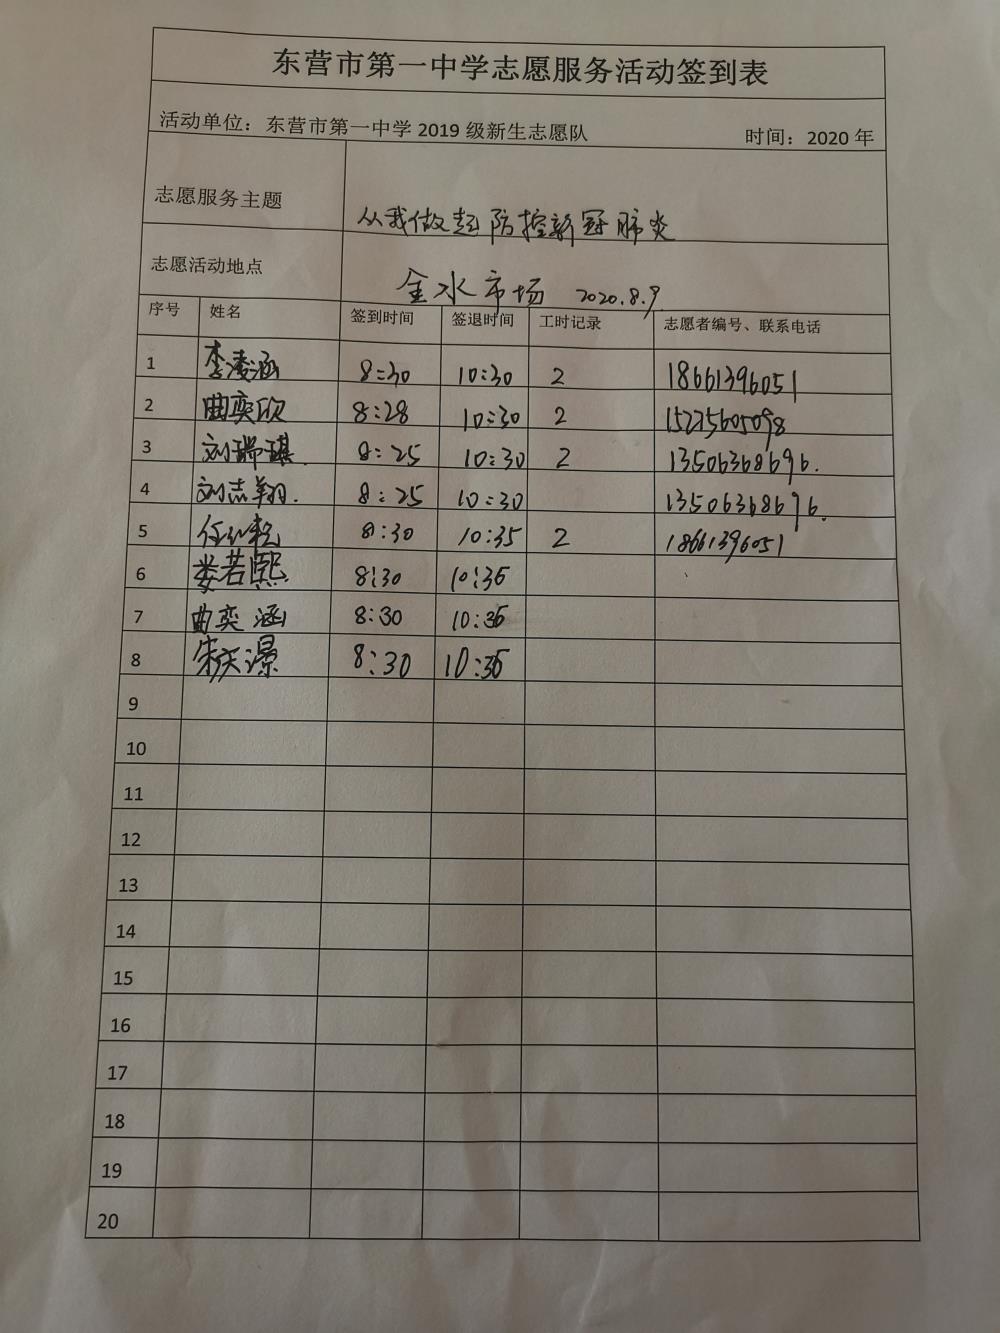 东营市第一中学志愿服务活动签到表
活动单位：东营市第一中学 2019 级新生志愿队 时间：2020 年
志愿服务主题 从我做起防控新冠肺炎
志愿活动地点 金水市场 2020.8.9
序号 姓名 签到时间 签退时间 工时记录 志愿者编号、联系电话
1 李凌涵 8:30 10:30 2 18661396051
2 曲奕欣 8:28 10:30 2 15275605098
3 刘瑞琪. 8:25 10:30 2 13506368696.
4 刘志翔. 8:25 10:30 13506368696.
5 8:30 10:35 2 18661396051
6 娄若熙 8:30 10:35
7 曲奕涵 8:30 10:35
8 8:30 10:35
9
10
11
12
13
14
15
16
17
18
19
20